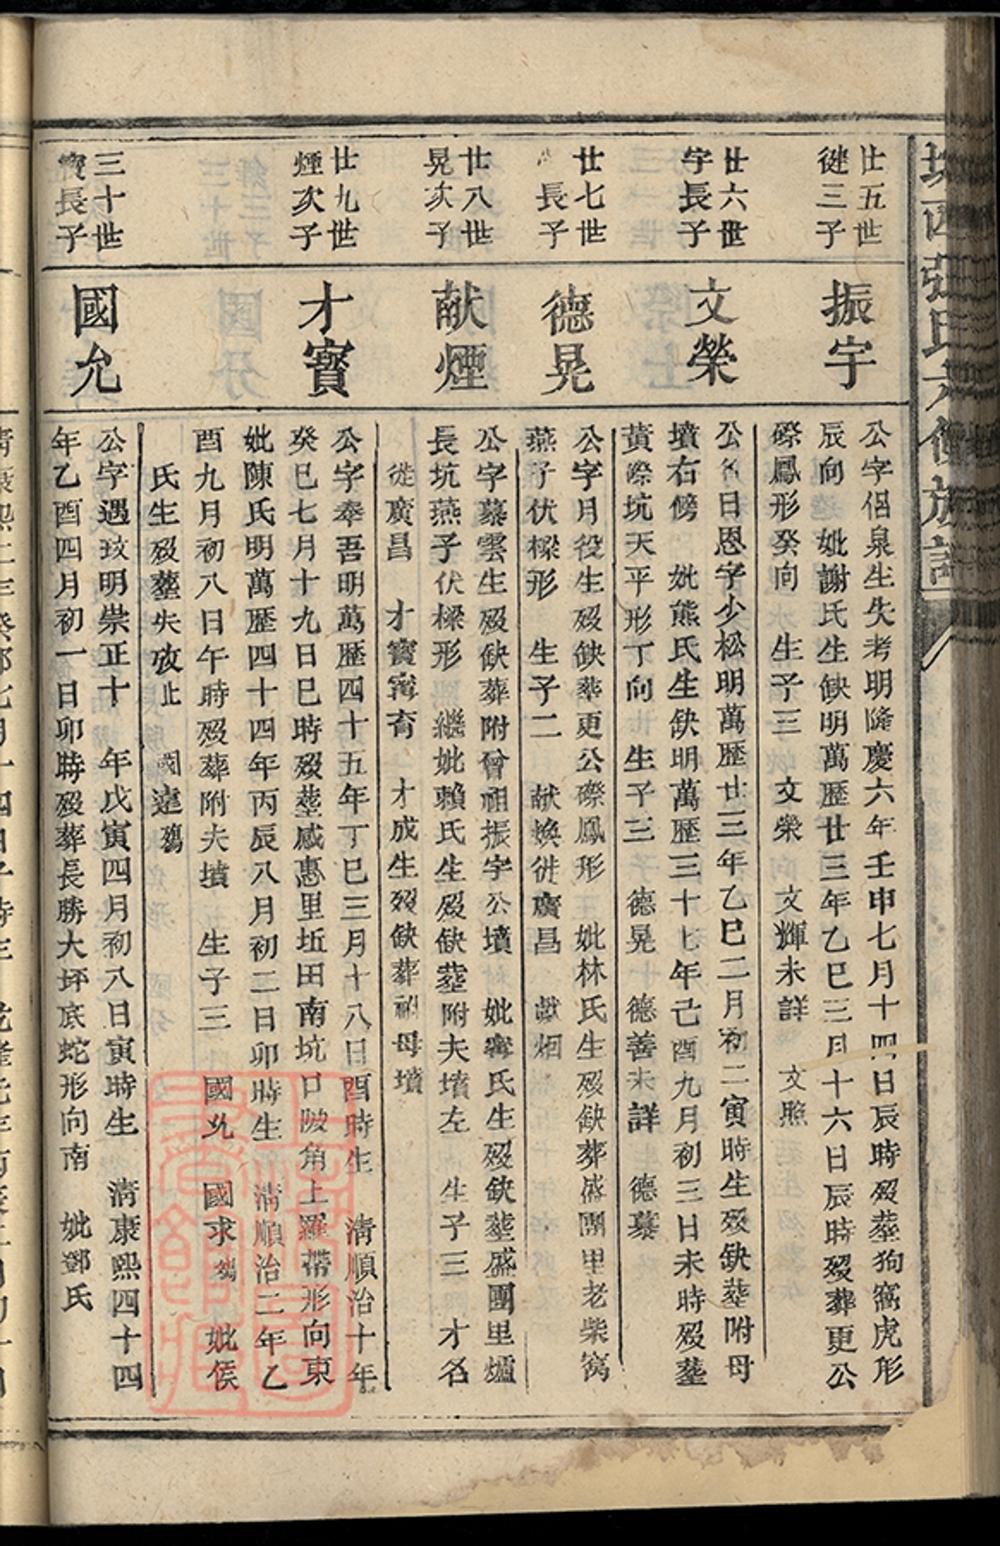 廿五世
徙三子
振宇
公字侶泉生失考明隆慶六年壬申七月十四日辰時歿塟狗窩虎形
辰向 妣謝氏生缺明萬歷廿三年乙巳三月十六日辰時歿葬更公
磜鳳形癸向 生子三 文榮 文輝未詳 文熙
廿六世
宇長子
文榮
公名日恩字少松明萬歷廿三年乙巳二月初二寅時生歿缺塟附母
墳右傍 妣熊氏生缺明萬歷三十七年己酉九月初三日未時歿塟
黄磜坑天平形丁向 生子三 德晃 德善未詳 德慕
廿七世
長子
德晃
公字月役生歿缺葬更公磜鳳形 妣林氏生歿缺葬盛團里老柴窩
燕子伏樑形 生子二 献煥徙廣昌 献烟
廿八世
晃次子
献煙
公字慕雲生歿缺葬附曾祖振宇公墳 妣寗氏生歿缺塟盛團里爐
長坑燕子伏樑形 繼妣賴氏生歿缺塟附夫墳左 生子三 才名
徙廣昌 才寶寗育 才成生歿缺葬祖母墳
廿九世
煙次子
才寳
公字奉吾明萬歷四十五年丁巳三月十八日酉時生 清順治十年
癸巳七月十九日巳時歿塟感惠里坵田南坑口陂角上羅帶形向東
妣陳氏明萬歷四十四年丙辰八月初二日卯時生 清順治二年乙
酉九月初八日午時歿葬附夫墳 生子三 國允 國求殤 妣侯
氏生歿塟失攷止 國達殤
三十世
寳長子
國允
公字遇玟明崇正十 年戊寅四月初八日寅時生 清康熙四十四
年乙酉四月初一日卯時歿葬長勝大坪底蛇形向南 妣鄧氏